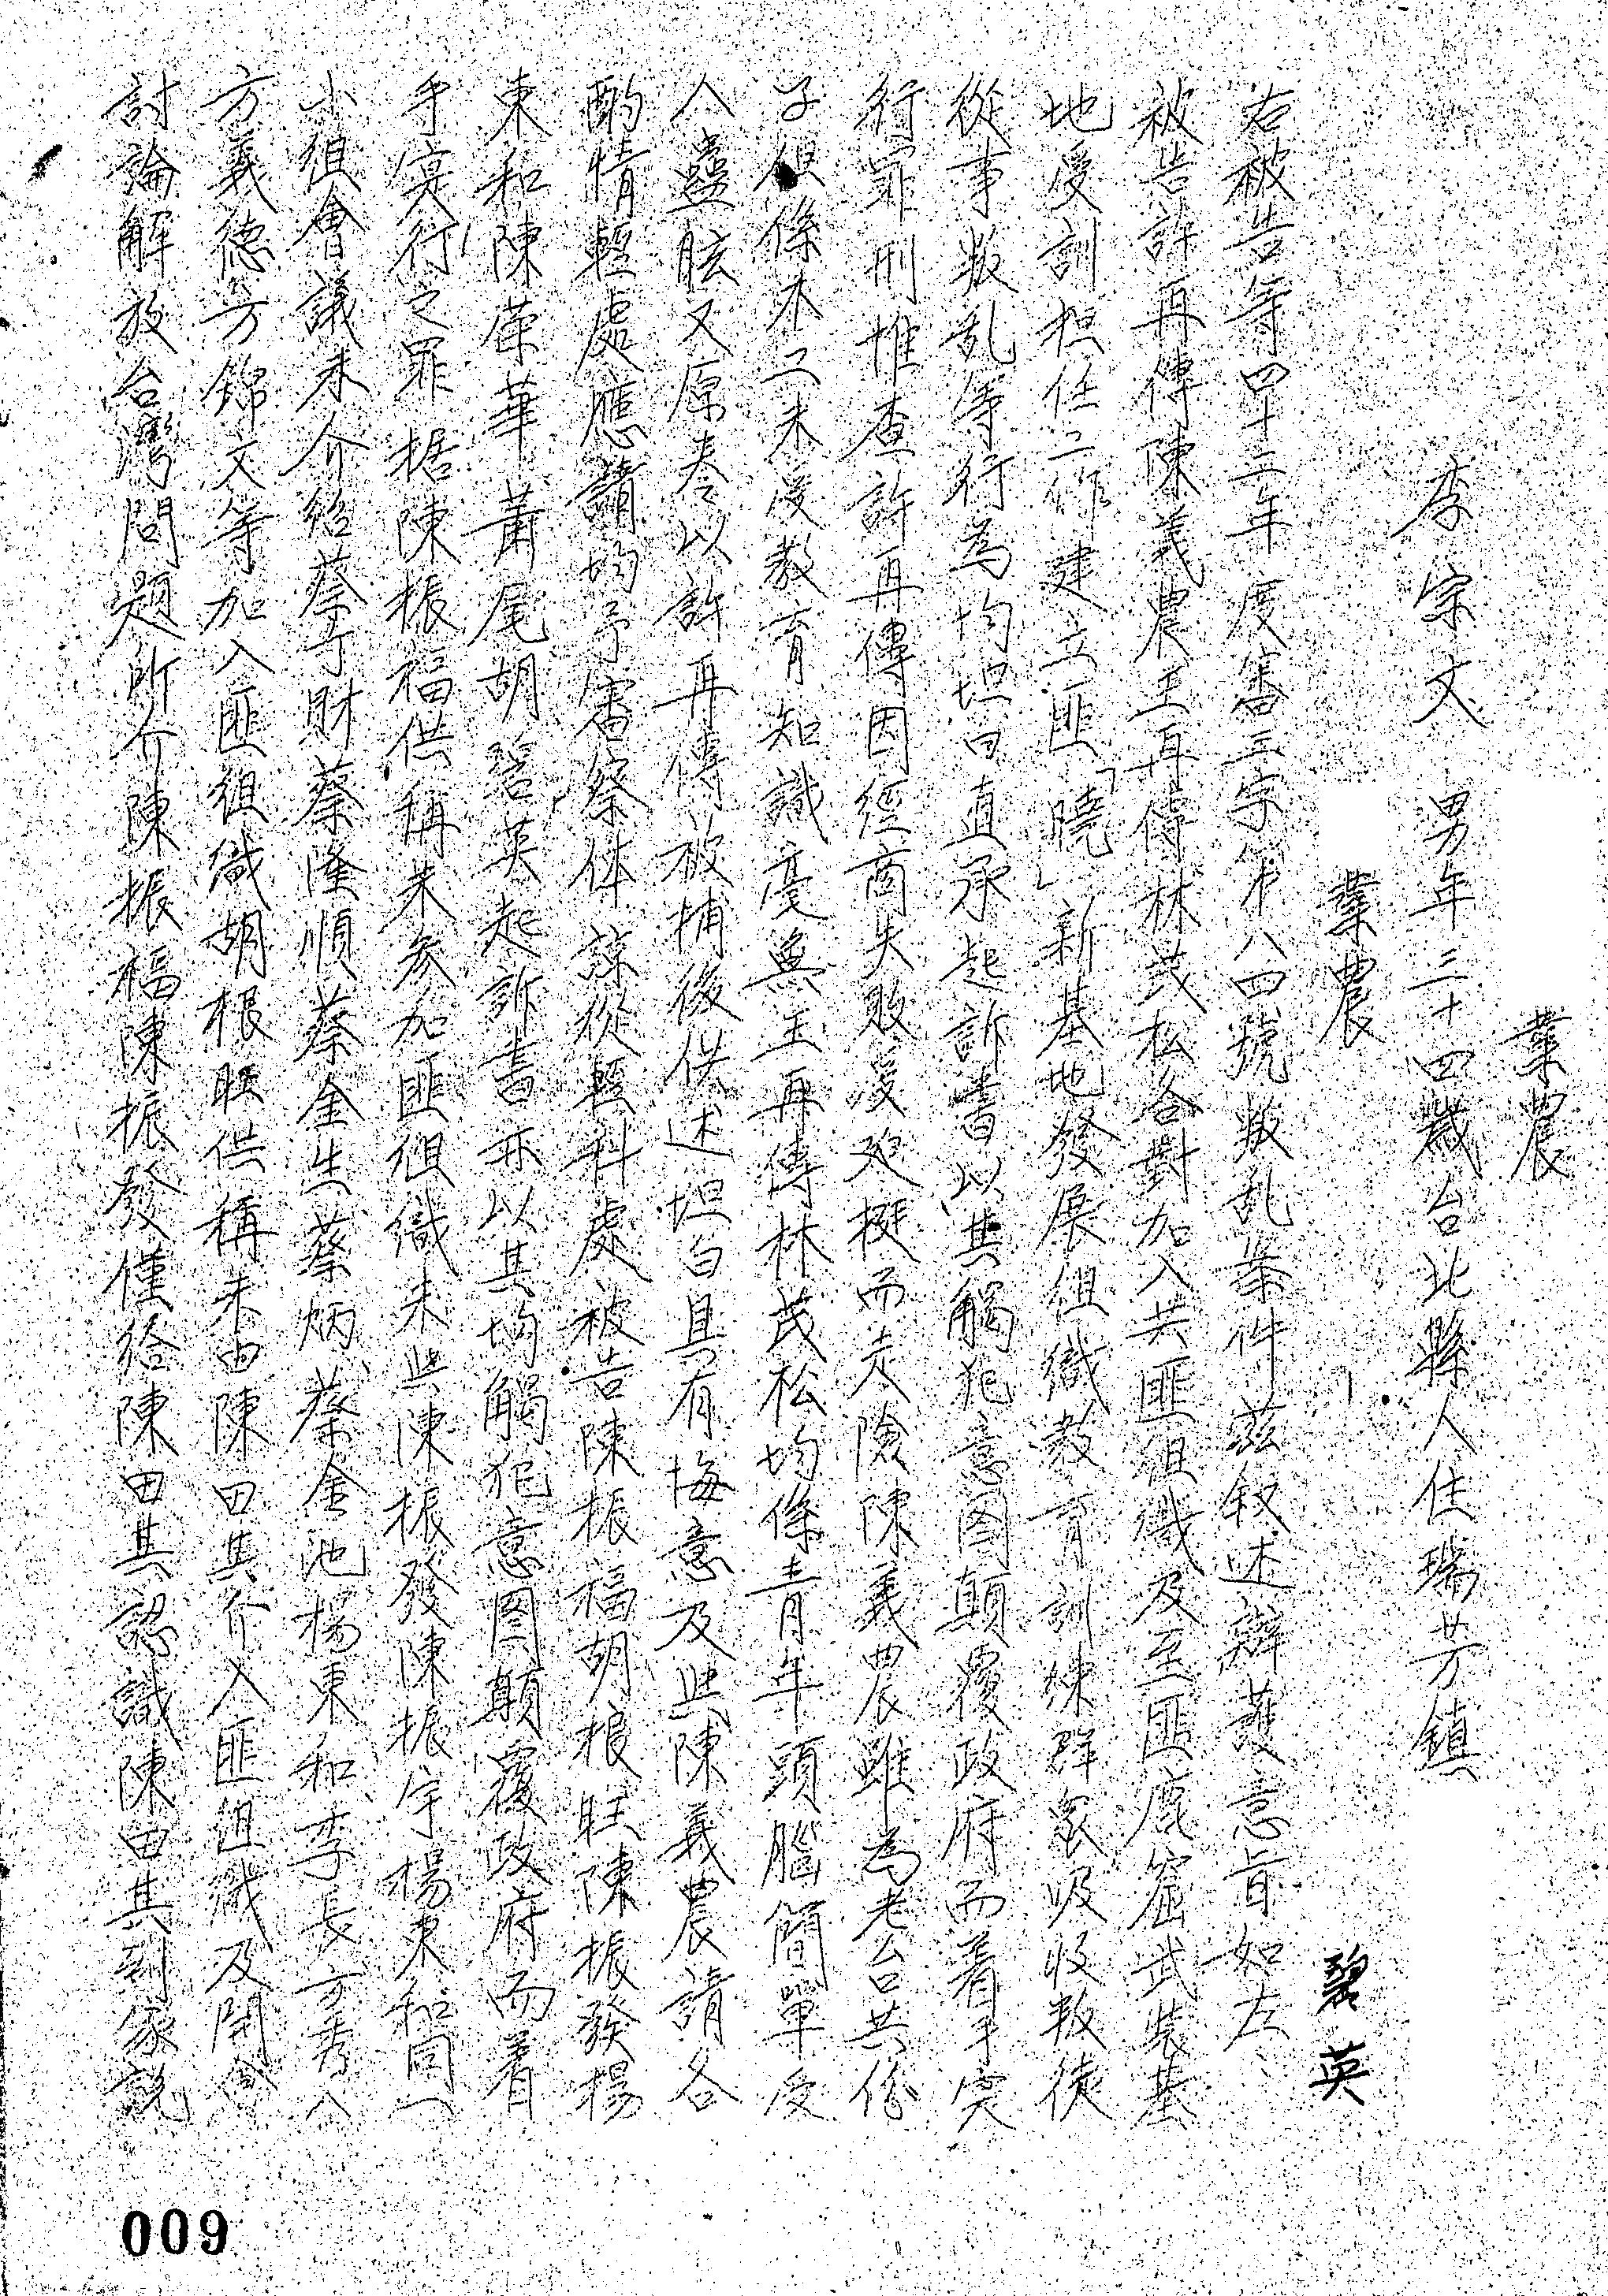 業農
李宗文 男年三十四歲台北縣人住瑞芳鎮
業農
碧英
右被告等四十二年度審三字第八四號叛乱案件茲叙述辯護意旨如左、
被告許再傳陳義農王再傳林茂松各對加入共匪組織及至匪鹿窟武裝基
地受訓担任工作建立匪「曉」新基地發展組織教育訓練群眾吸收叛徒
從事叛乱等行為均坦白直承起訴書以其觸犯意图顛覆政府而着手实
行罪刑惟查許再傳因經商失敗受迫挺而走險陳義農雖為老台共份
子但係木工未受教育知識毫無王再傳林茂松均係青年頭腦簡單受
人蠱眩又原卷以許再傳被捕後供述坦白具有悔意及些陳義農請各
酌情輕處應請均予審察体諒從輕科處被告陳振福胡根旺陳振發楊
東和陳蓙華蕭尾胡碧英起訴書亦以其均觸犯意图顛覆政府而着
手实行之罪据陳振福供稱未參加匪組織未些陳振發陳振宇楊東和同一
小組會議未介紹蔡丁財蔡隆順蔡金生蔡炳蔡金池楊東和李長方秀八
方義德方錦文等加入匪組織胡根旺供稱未由陳田其介入匪组織及開會
討論解放台灣問題所介陳振福陳振發僅給陳田其認識陳田其到家說
009